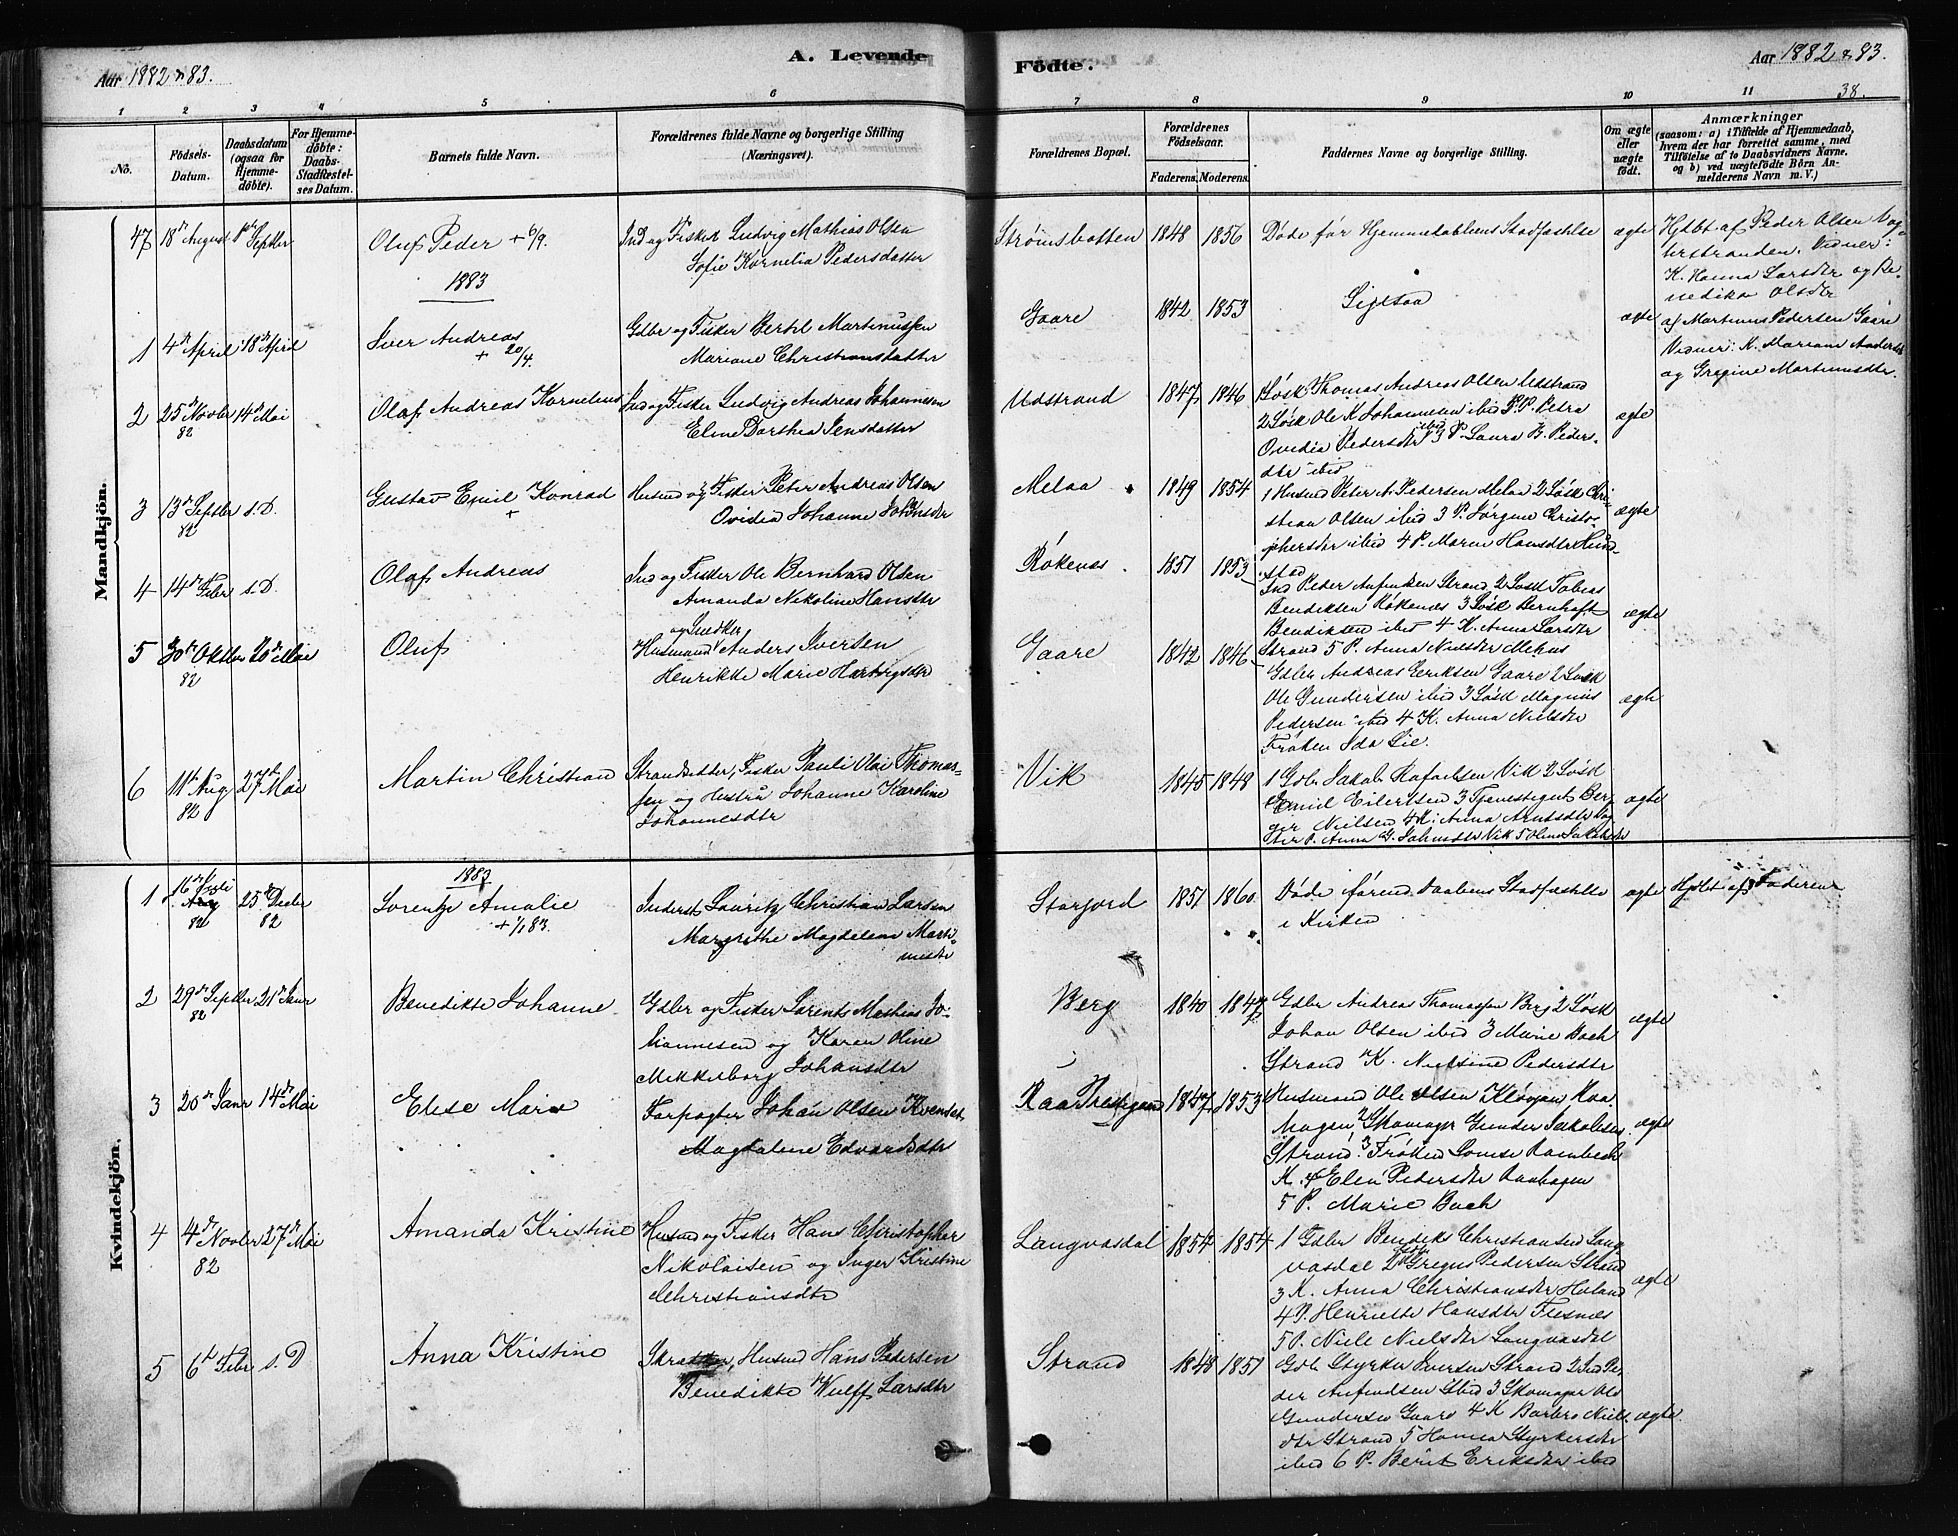 Aar 1882 & 83.
A. Levende
Födte.
Aar 1882 & 83.
38.
1 2 3 4 5 6 7 8 9 10 11
No.
Födsels-Datum.
Daabsdatum (ogsaa for Hjemme-döbte).
For Hjemme-döbte: Daabs-Stadfæstel-ses Datum.
Barnets fulde Navn.
Forældrenes fulde Navne og borgerlige Stilling (Næringsvei).
Forældrenes Bopæl.
Forældrenes Födselsaar.
Faderens. Moderens.
Faddernes Navne og borgerlige Stilling.
Om ægte eller uægte födt.
Anmærkninger
(saasom: a) i Tilfælde af Hjemmedaab,
hvem der har forrettet samme, med
Tilföielse af to Daabsvidners Navne,
og b) ved uægtefödte Börn An-
melderens Navn m. V.)
Mandkjön.
47 18de August 1ste Septbr Oluf Peder + 6/9. Ind og Fisker Ludvig Mathias Olsen
Sofie Kornelia Pedersdatter
Strømsbotten 1848 1856 Døde før Hjemmedaabens Stadfæstelse ægte
Hjdbt af Peder Olsen Vog-
terstranden. Vidner:
K. Hanna Larsdtr og Be-
nedikte Olsdtr
1883
1 4de April 18de April Iver Andreas + 20/4.
Gdbr og Fisker Bertil Martinussen
Mariane Christiansdatter
Gaare 1842 1853 Ligesaa ægte
af Martinus Pedersen Gaare
Vidner: K. Mariane Andersdtr
og Gregine Martinusdtr.
2 25de Novbr 82 14de Mai Olaf Andreas Kornelius
Ind og Fisker Ludvig Andreas Johannesen
Eline Dorthea Jensdatter
Udstrand 1847 1846 Løsk Thomas Andreas Olsen Udstrand
2 Løsk Ole K Johannesen ibid P. Petra
Ovidia Pedersdtr ibid 3 P. Laura B. Peders-
dtr ibid
ægte
3 13de Septbr 82 s. D. Gustav Emil Konrad +
Husmd og Fisker Peter Andreas Olsen
Ovidia Johanne Johnsdtr
Melaa 1849 1854 1 Husmd Peter A. Pedersen Melaa 2 Løsk Chri-
stian Olsen ibid 3 P. Jørgine Christo-
phersdtr ibid 4 P. Maren Hansdtr Sund-
stad
ægte
4 14de Febr s. D. Olaf Andreas
Ind og Fisker Ole Bernhard Olsen
Amanda Nikoline Hansdtr
Røkenes. 1851 1853 Ind Peder Anfindsen Strand 2 Løsk Tobias
Bendiksen Røkenes 3 Løsk Bernhoft
Bendiksen ibid 4 K. Anna Larsdtr
Strand 5 P. Anna Nielsdtr
ægte
5 30de Oktbr 82 20de Mai Oluf
og Snedker
Husmand Anders Iversen
Henrikke Marie Hartvigsdtr
Gaare 1842 1846 Gdbr Andreas Eeriksen Gaare 2 Løsk
Ole Gundersen ibid 3 Løsk Magnus
Pedersen ibid 4 K. Anna Nielsdtr
Frøken Ida Lie.
ægte
6 11te Aug 82 27de Mai Martin Christian
Strandsidder, Fisker Pauli Olai Thomas-
sen og Hustru Johanne Karoline
Johannesdtr
Vik 1845 1848 1 Gdbr Jakob Rafaelsen Vik 2 Løsk
Emil Eilertsen 3 Tjenestegut Ber-
ger Nielsen 4 K. Anna Arntsdtr
P. Anna G. Johnsdtr Vik 5 Oline Jakobsdtr
ægte
Kvindekjön.
1883
1 16de Juli 82 25de Decbr 82 Lorentze Amalie + 1/1 83.
Inderst Lauritz Christian Larsen
Margrethe Magdelene Marti-
nusdtr
Storjord 1851 1860. Døde førend Daabens Stadfæstelse
i Kirken
ægte Hjdbt af Faderen
2 29de Septbr 82 21de Janr Benedikte Johanne
Gdbr og Fisker Lorents Mathias Jo-
hannesen og Karen Oline
Mekkelborg Johansdtr
Berg 1840 1847 Gdbr Andreas Thomassen Berg 2 Løsk
Johan Olsen ibid 3 Marie Bach
Strand K. Nielsine Pedersdtr
ægte
3 20de Janr 14de Mai Elise Marie
Forpagter Johan Olsen
Magdalene Edvardsdtr
Raa Prestegaard 1847 1853 Husmand Ole Olsen
2 Skomager Gunder Jakobsen
Strand. 3 Frøken Lovise
K. 4 Elen Pedersdtr
5 P. Marie Bach
ægte
4 4de Novbr 82 27de Mai Amanda Kristine
Husmd og Fisker Hans Christopher
Nikolaisen og Inger Kristine
Christiansdtr
Langvasdal 1854 1854 1 Gdbr Bendiks Christiansen Lang-
vasdal 2 Gregus Pedersen Strand
3 K. Anna Christiansdtr
4 P. Henriette Hansdtr
5 P. Nielsdtr Langvasdal
ægte
5 6te Febr s. D Anna Kristine
Husmd Hans Pedersen
Benedikte Wulff Larsdtr
Strand 1848 1851 Gdb Styrker Iversen Strand 2 Ind Pe-
der Anfindsen ibid 3 Skomager Ole
Gundersen Gaare 4 K Barbro Niels-
dtr Strand 5 Hanna Styrkersdtr
ibid 6 P. Berit Eriksdtr ibid
ægte.